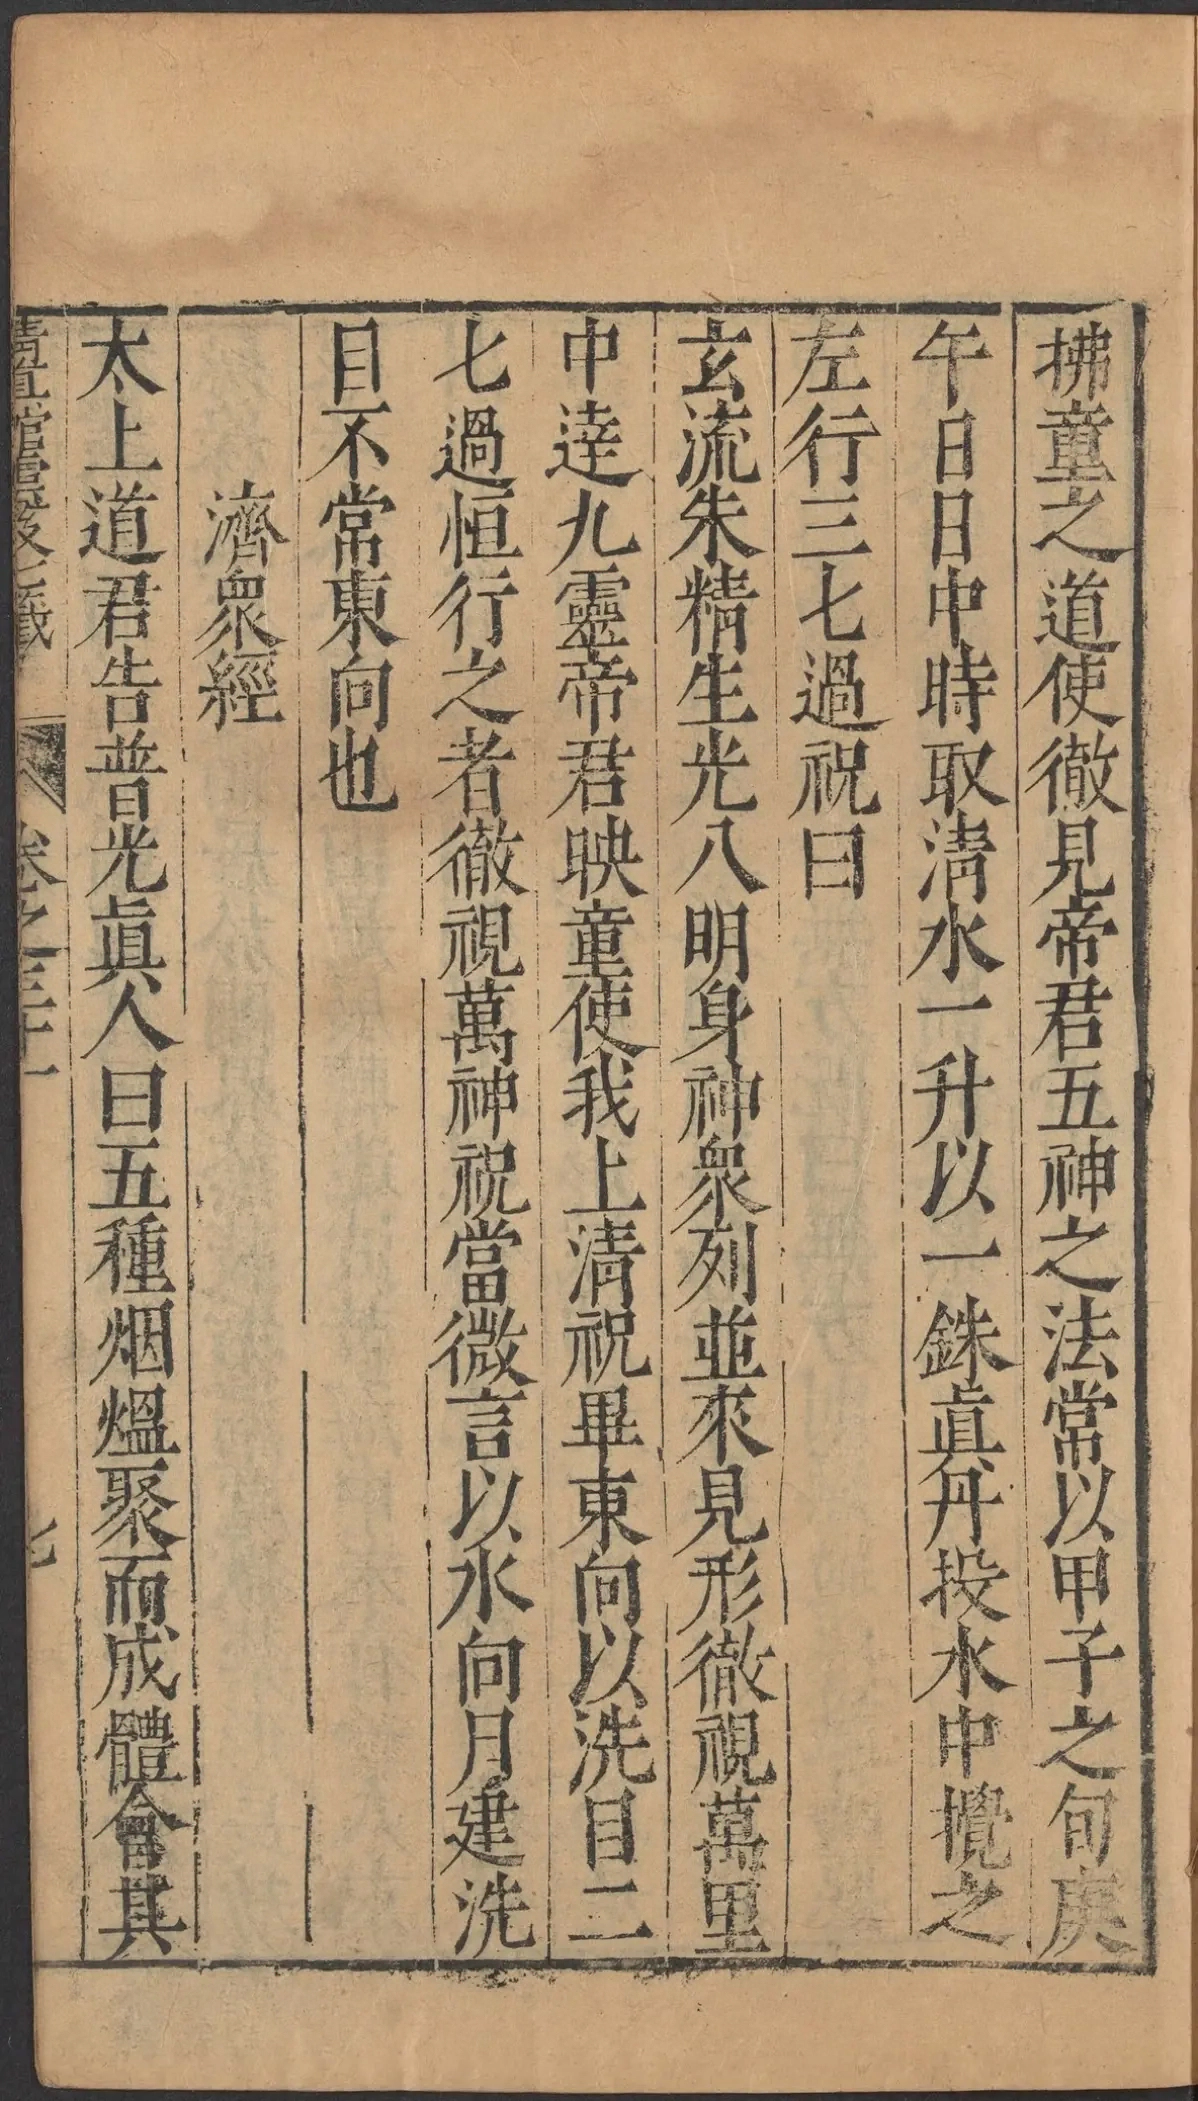 拂童之道使徹見帝君五神之法常以甲子之旬庚
午日日中時取淸水一升以一銖眞丹投水中攪之
左行三七過祝曰
玄流朱精生光八明身神衆列並來見形徹視萬里
中達九靈帝君映童使我上淸祝畢東向以洗目二
七過恒行之者徹視萬神祝當微言以水向月建洗
目不常東向也
濟衆經
太上道君告普光眞人曰五種烟熅聚而成體會其
卷之三十一
七